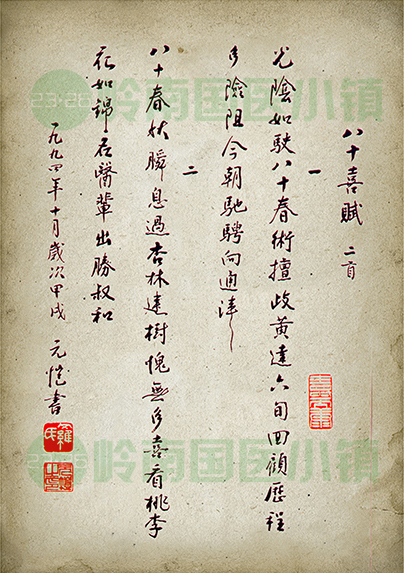 八十喜賦 二首
一
光陰如駛八十春術擅岐黃達六旬回顧歷程
多險阻今朝馳騁向通津
二
八十春秋瞬息過杏林建樹愧無多喜看桃李
花如錦后醫輩出勝叔和
一九九四年十月歲次甲戌 元愷書
羅氏
23·28 岭南国医小镇
岭南国医小镇